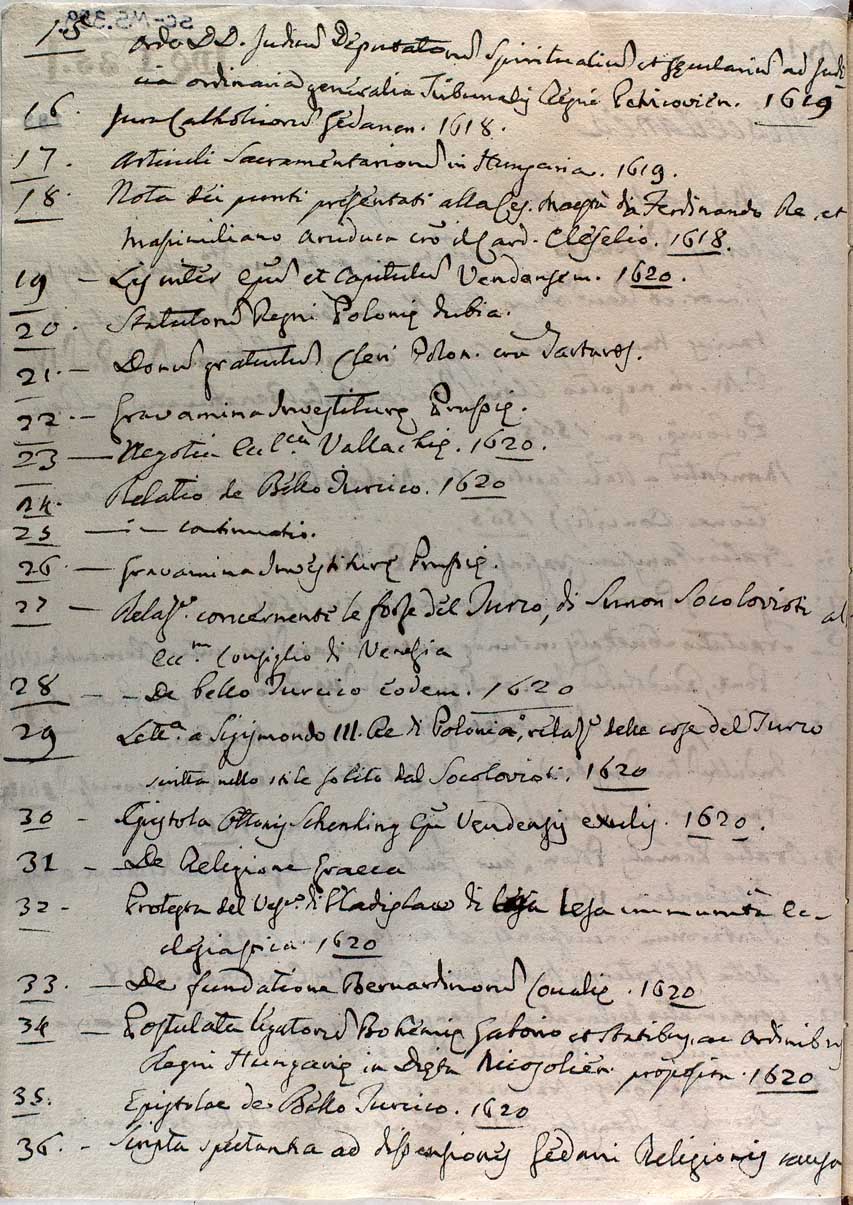 15 Ordo DD. Judicũ Deputatorũ Spiritualiũ et secularium ad Judi-
cia ordinaria generalia Tribunalis Regni Petricovien. 1619
16. Jura Catholicorũ Gedanen. 1618.
17. Articuli Sacramentariorũ in Hungaria. 1619.
18. Nota dei punti presentati alla Ces. Maestà da Ferdinando Re, et
Massimiliano Arciduca crõ il Card. Cleselio. 1618.
19 - Lis inter Epũ et Capitulũ Vendensem. 1620.
20. Statutorũ Regni Polonię dubia.
21. - Donũ gratuitũ Cleri Polon. crã Tartaros.
22. - Gravamina Investiturę Prussię.
23 - Negotia Eccl.ca Vallachię. 1620.
24. Relatio de Bello Turcico. 1620
25 - i - continuatio.
26 - Gravamina Investiturę Prussię.
27 - Relaz.e concernente le forze del Turco, di Simon Socolovisti al-
Ecc.mo Consiglio di Venezia
28 - - De bello Turcico eodem. 1620
29 Lett.a a Sigismondo III. Re di Polonia, relaz.e delle cose del Turco
scritta nello stile solito dal Socolovisti. 1620
30 - Epistola Ottonis Schenking Epĩ Vendensis exulis. 1620.
31 - De Religione Graeca
32 - Protesta del Vesc.o di Vladislavo di lesa immunità Ec-
clesiastica. 1620
33. - De fundatione Bernardinorũ Conalię. 1620
34 - Postulata legatorũ Bohemię Gabori et Statibus, ac Ordinibus
Regni Hungarię in Dieta Nicosolien. proposita. 1620
35. Epistolae de Bello Turcico. 1620
36. - Scripta spectantia ad dissensiones Gedani Religionis causa